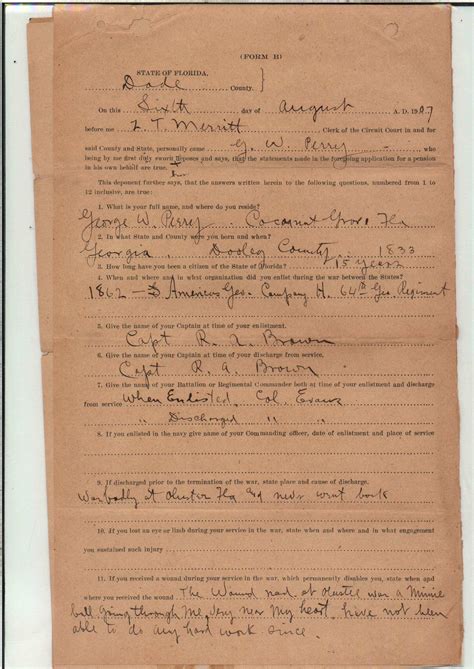 (FORM B)
STATE OF FLORIDA,
Dade County.
On this Sixth day of August A. D. 1907
before me Z. T. Merritt Clerk of the Circuit Court in and for
said County and State, personally came G. W. Perry who
being by me first duly sworn deposes and says, that the statements made in the foregoing application for a pension
in his own behalf are true.
This deponent further says, that the answers written herein to the following questions, numbered from 1 to
12 inclusive, are true:
1. What is your full name, and where do you reside?
George W. Perry Cocoanut Grove Fla
2. In what State and County were you born and when?
Georgia, Dooley County 1833
3. How long have you been a citizen of the State of Florida? 15 years
4. When and where and in what organization did you enlist during the war between the States?
1862 Americus Geo. Company H. 64th Geo. Regiment
5. Give the name of your Captain at time of your enlistment.
Capt R. A. Brown
6. Give the name of your Captain at time of your discharge from service.
Capt R. A. Brown
7. Give the name of your Battalion or Regimental Commander both at time of your enlistment and discharge
from service When Enlisted, Col. Evans
" Discharged " "
8. If you enlisted in the navy give name of your Commanding officer, date of enlistment and place of service
9. If discharged prior to the termination of the war, state place and cause of discharge.
badly at Fla never went back
10. If you lost an eye or limb during your service in the war, state when and where and in what engagement
you sustained such injury
11. If you received a wound during your service in the war, which permanently disables you, state when and
where you received the wound The Wound at was a Minnie
ball going through me very near my heart, have not been
able to do any hard work since.